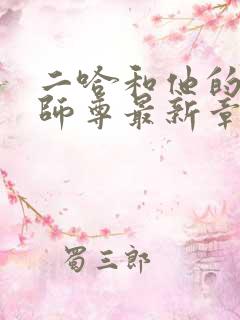 二哈和他的
师尊最新章
蜀三郎